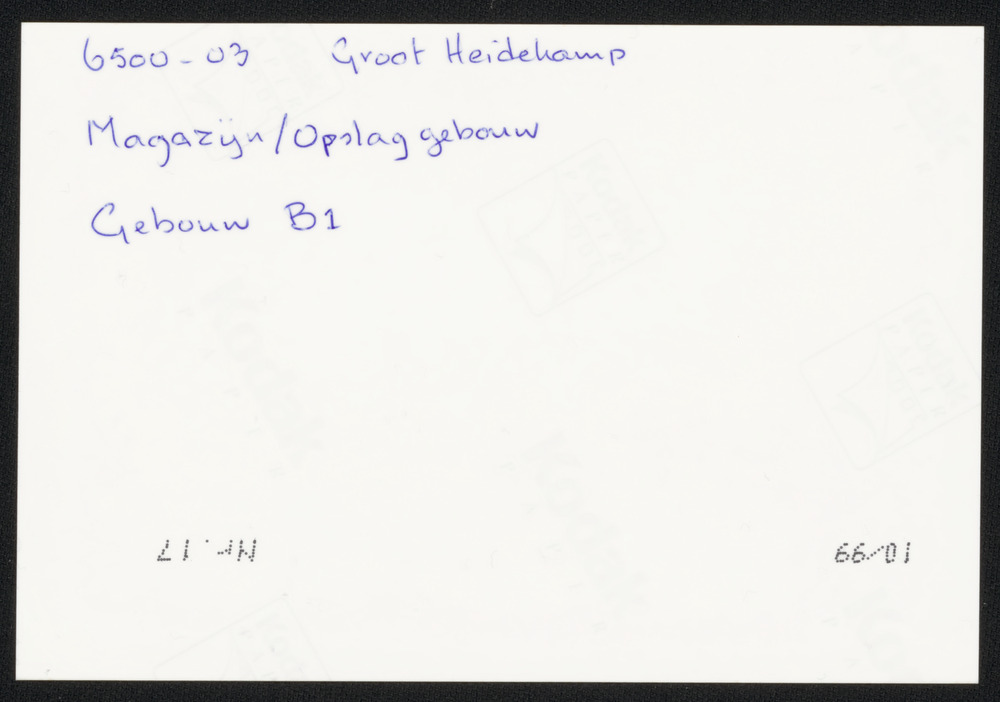 6500-03 Groot Heidekamp
Magazijn/Opslag gebouw
Gebouw B1
Nr. 17
10/99
Kodak
Kodak